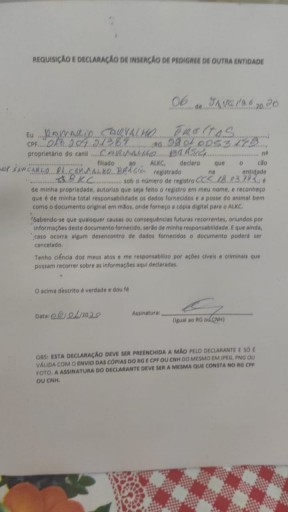 REQUISIÇÃO E DECLARAÇÃO DE INSERÇÃO DE PEDIGREE DE OUTRA ENTIDADE
06 de JANEIRO 2020
Eu CARVALHO FREITAS
CPF RG
proprietário do canil CARVALHO nº
filiado ao ALKC, declaro que o cão
registrado na entidade
sob o número de registro e
de minha propriedade, autorizo que seja feito o registro em meu nome, e reconheço
que é de minha total responsabilidade os dados fornecidos e a posse do animal bem
como o documento original em mãos, onde forneço a cópia digital para o ALKC.
Sabendo-se que quaisquer causas ou consequências futuras recorrentes, oriundos por
informações deste documento fornecido, serão da minha responsabilidade. E que ainda,
caso ocorra algum desencontro de dados fornecidos o documento poderá ser
cancelado.
Tenho ciência dos meus atos e me responsabilizo por ações cíveis e criminais que
possam recorrer sobre as informações aqui declaradas.
O acima descrito é verdade e dou fé
Data: Assinatura:
(igual ao RG ou CNH)
OBS: ESTA DECLARAÇÃO DEVE SER PREENCHIDA A MÃO PELO DECLARANTE E SÓ É
VÁLIDA COM O ENVIO DAS CÓPIAS DO RG E CPF OU CNH DO MESMO EM JPEG, PNG OU
FOTO. A ASSINATURA DO DECLARANTE DEVE SER A MESMA QUE CONSTA NO RG CPF
OU CNH.